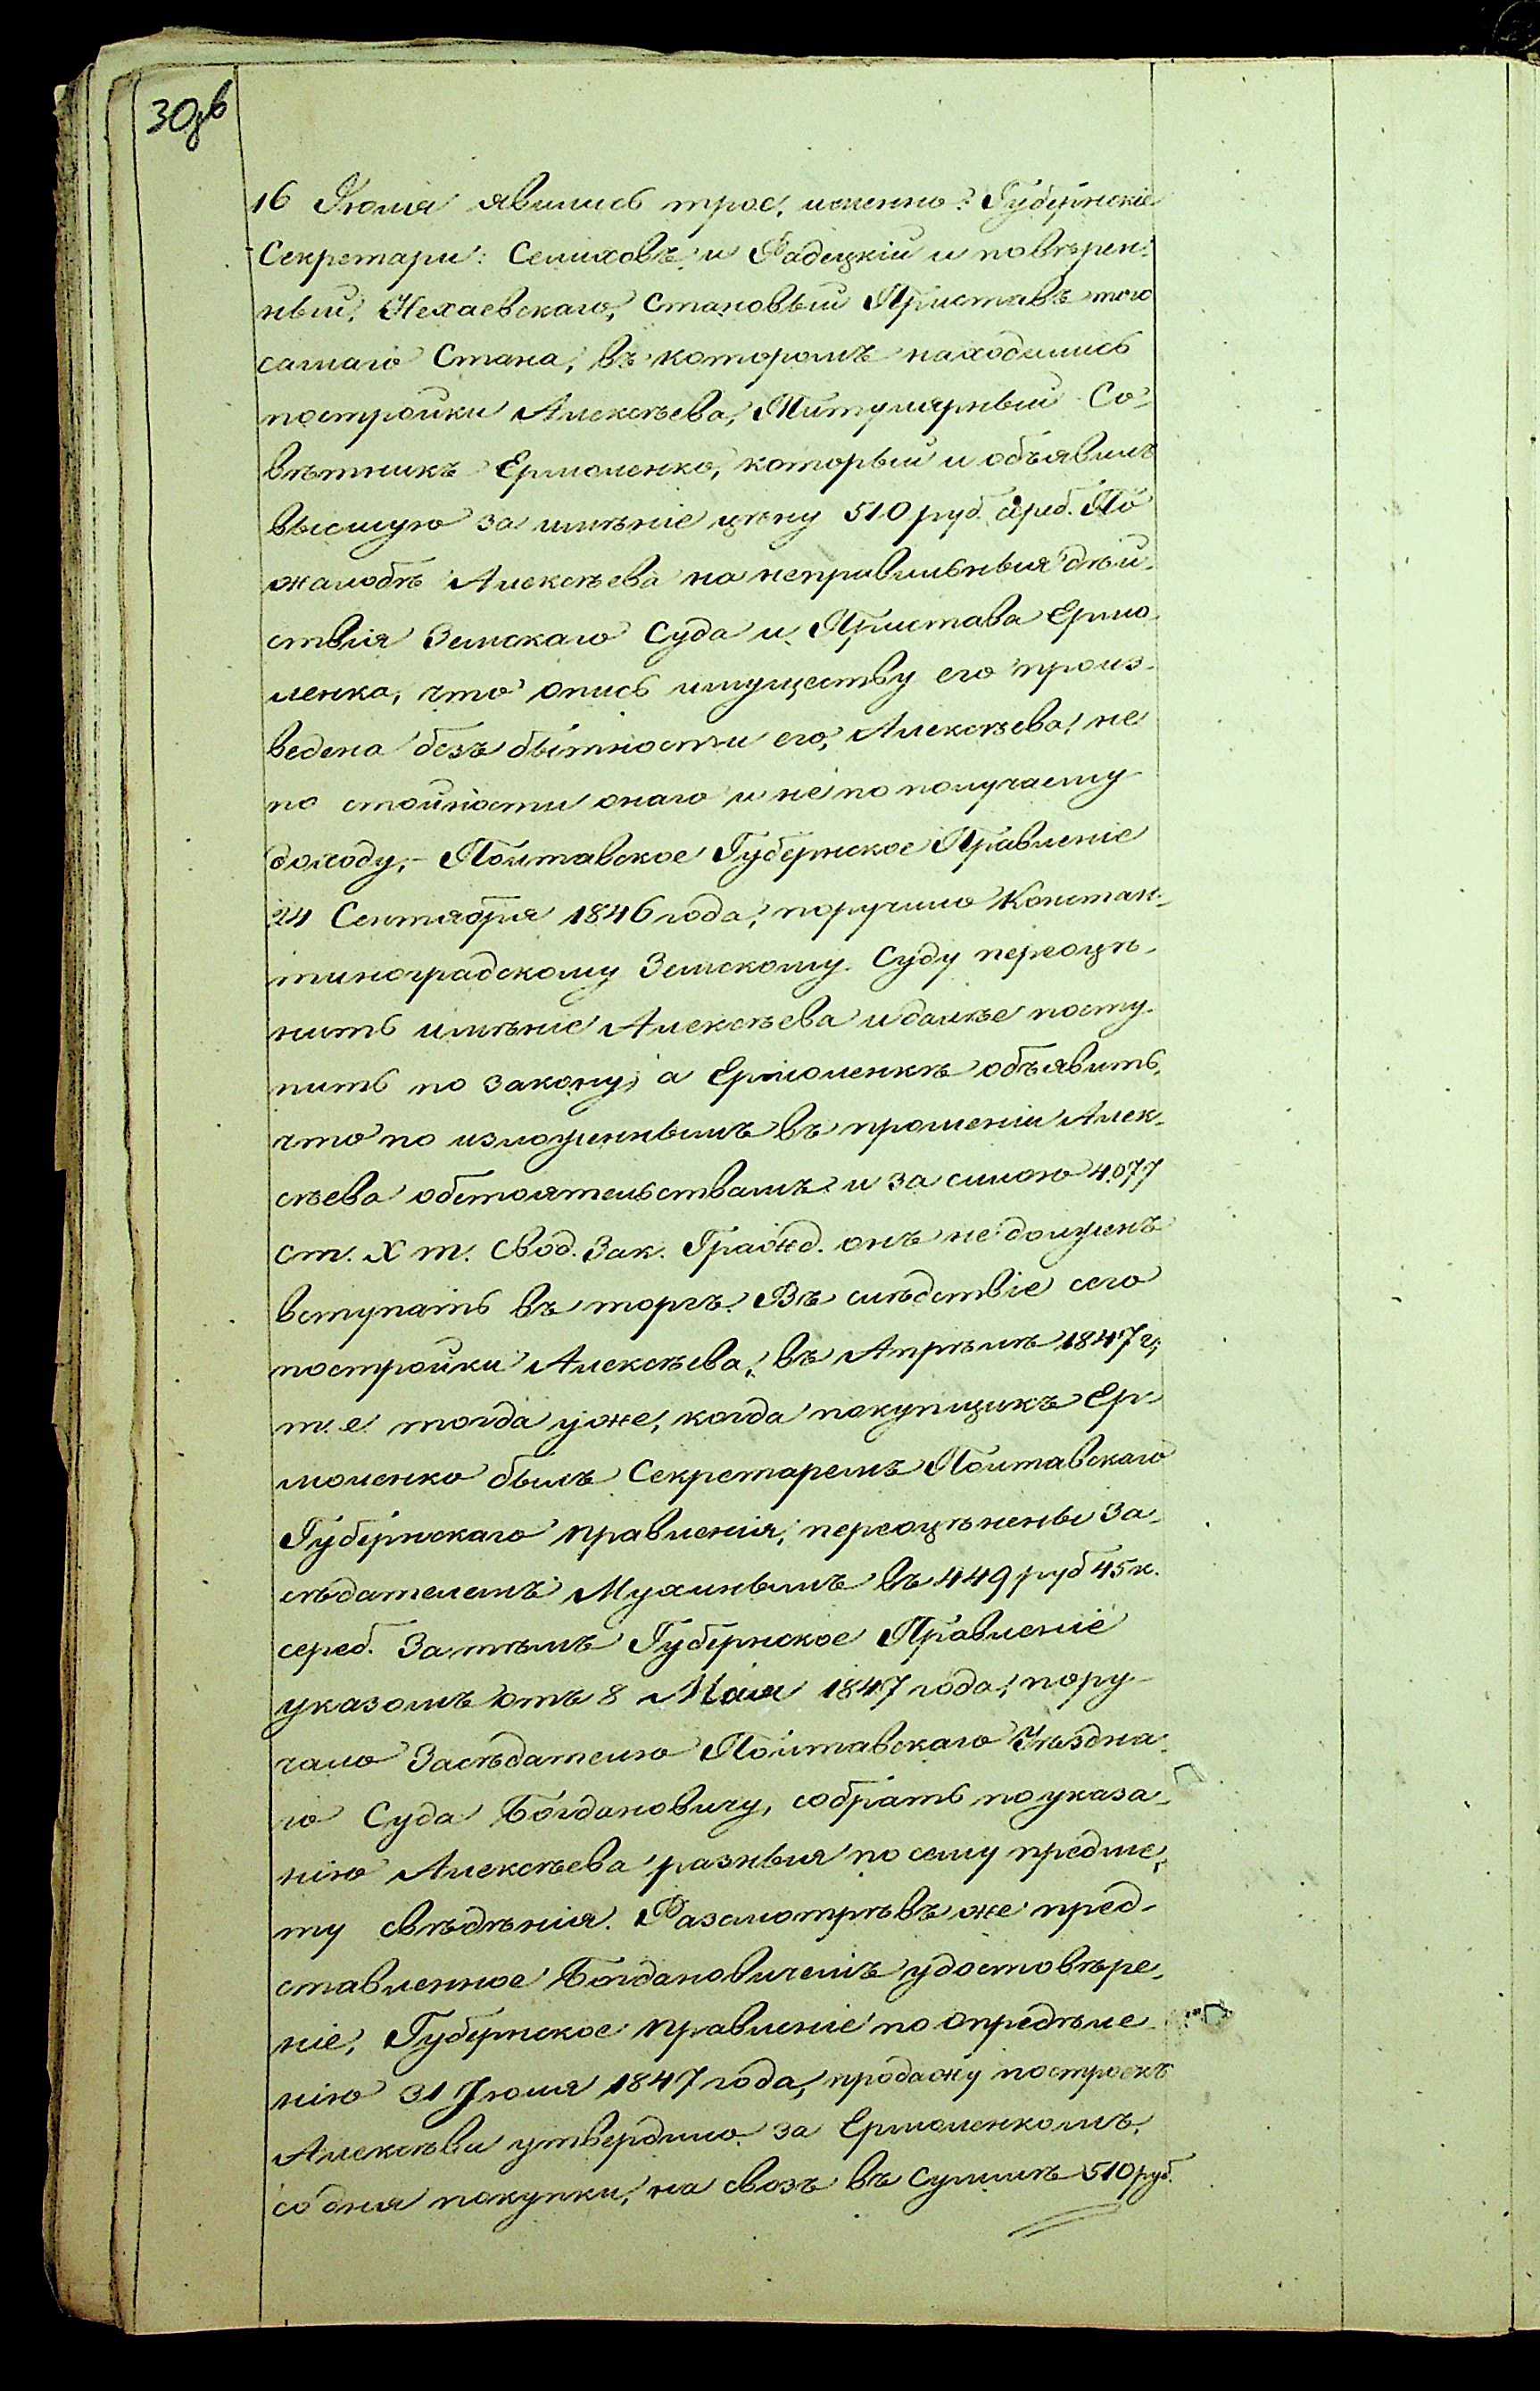 30 об
16 Июля явились трое, именно: Губернскіе
Секретари: Селиховъ и Радецкій и повѣрен-
ный Нехаевскаго, Становый Приставъ того
самаго Стана, въ которомъ находились
постройки Алексѣева, Титулярный Со-
вѣтникъ Ермоленко, который и объявилъ
высшую за имѣніе цѣну 510 руб. сереб. По
жалобѣ Алексѣева на неправильныя дѣй-
ствія Земскаго Суда и Пристава Ермо-
ленка, что опись имуществу его произ-
ведена безъ бытности его, Алексѣева, не
по стоимости онаго и не по получаему
доходу, - Полтавское Губернское Правленіе
24 Сентября 1846 года, поручило Констан-
тиноградскому Земскому Суду переоцѣ-
нить имѣніе Алексѣева и далѣе посту-
пить по закону; а Ермоленкѣ объявить,
что по изложеннымъ въ прошеніи Алек-
сѣева обстоятельствамъ и за силою 4077
ст. X т. Свод. Зак. Гражд. онъ не долженъ
вступать въ торгъ. Въ слѣдствіе сего
постройки Алексѣева, въ Апрѣлѣ 1847 г.,
т. е. тогда уже, когда покупщикъ Ер-
моленко былъ Секретаремъ Полтавскаго
Губернскаго правленія, переоцѣнены За-
сѣдателемъ Мухинымъ въ 449 руб 45 к.
сереб. За тѣмъ Губернское Правленіе
указомъ отъ 8 Мая 1847 года, пору-
чало Засѣдателю Полтавскаго Уѣздна-
го Суда Богдановичу, собрать по указа-
нію Алексѣева разныя по сему предме-
ту свѣдѣнія. Разсмотрѣвъ же пред-
ставленное Богдановичемъ удостовѣре-
ніе, Губернское правленіе по опредѣле-
нію 31 Іюля 1847 года, продажу построекъ
Алексѣева утвердило за Ермоленкомъ,
со дня покупки, на свозъ въ суммѣ 510 руб.